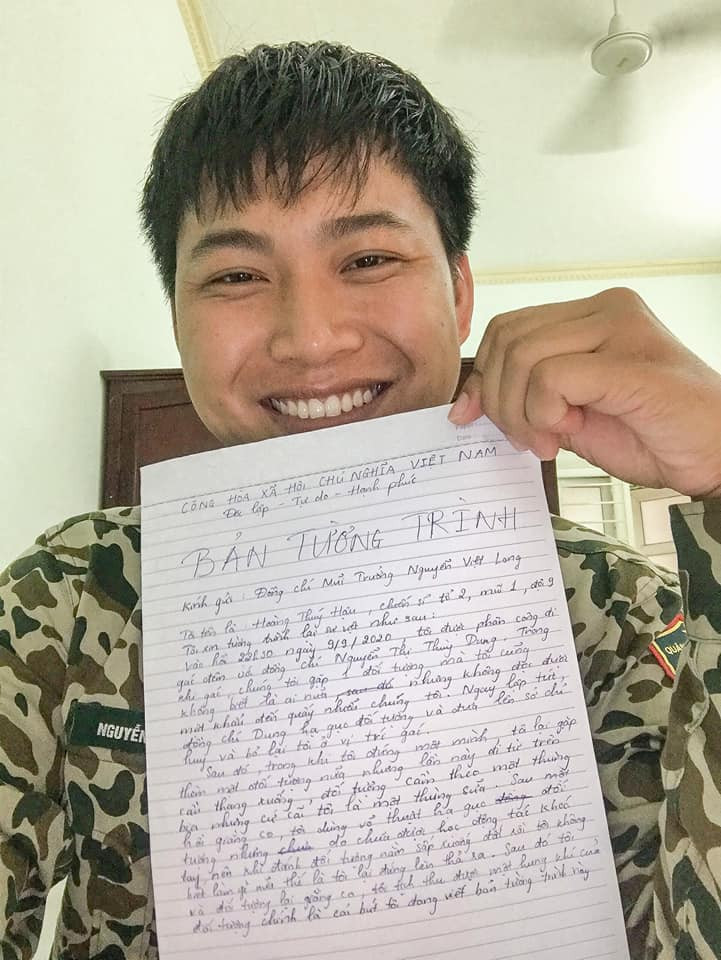 CỘNG HÒA XÃ HỘI CHỦ NGHĨA VIỆT NAM
Độc lập - Tự do - Hạnh phúc
BẢN TƯỜNG TRÌNH
Kính gửi : Đồng chí Mũi Trưởng Nguyễn Việt Long
Tôi tên là : Hoàng Thuý Hậu, chiến sĩ tổ 2, mũi 1, đội 9
Tôi xin tường trình lại sự việt như sau :
Vào hồi 22h30 ngày 9/9/2020, tôi được phân công đi
gác đêm và đồng chí Nguyễn Thị Thuỳ Dung. Trong
khi gác, chúng tôi gặp 1 đối tượng mà tôi cũng
không biết là ai nữa, nhưng không đọc được
mật khẩu đến quấy nhiễu chúng tôi. Ngay lập tức,
đồng chí Dung hạ gục đối tượng và đưa lên sở chỉ
huy và bỏ lại tôi ở vị trí gác.
Sau đó, trong khi tôi đứng một mình, tôi lại gặp
thêm một đối tượng nữa nhưng lần này đi từ trên
cầu thang xuống, đối tượng cầm theo một thùng
bia nhưng cự cãi tôi là một thùng sữa. Sau một
hồi giằng co, tôi dùng võ thuật hạ gục đối
tượng nhưng do chưa được học động tác khoá
tay nên khi đánh đối tượng nằm sấp xuống đất rồi tôi không
biết làm gì nữa thế là tôi lại đứng lên thả ra. Sau đó tôi
và đối tượng lại giằng co, tôi tịch thu được một hung khí của
đối tượng chính là cái bút tôi đang viết bản tường trình này
NGUYỄN
QUÂ